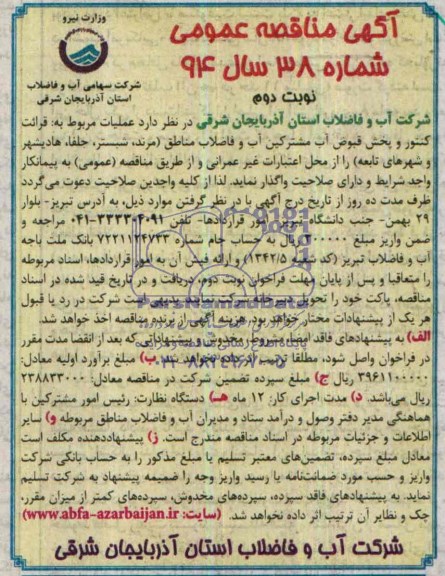 وزارت نیرو
آگهی مناقصه عمومی
شماره ۳۸ سال ۹۴
شرکت سهامی آب و فاضلاب
استان آذربایجان شرقی
نوبت دوم
شرکت آب و فاضلاب استان آذربایجان شرقی در نظر دارد عملیات مربوط به: قرائت
کنتور و پخش قبوض آب مشترکین آب و فاضلاب مناطق (مرند، شبستر، جلفا، هادیشهر
و شهرهای تابعه) را از محل اعتبارات غیر عمرانی و از طریق مناقصه (عمومی) به پیمانکار
واجد شرایط و دارای صلاحیت واگذار نماید. لذا از کلیه واجدین صلاحیت دعوت می‌گردد
ظرف مدت ده روز از تاریخ درج آگهی با در نظر گرفتن موارد ذیل، به آدرس تبریز- بلوار
۲۹ بهمن- جنب دانشگاه تبریز امور قراردادها- تلفن ۳۳۳۰۴۰۹۱-۰۴۱ مراجعه و
ضمن واریز مبلغ ریال به حساب جام شماره ۷۲۲۱۱۲۴۷۳۳ بانک ملت باجه
آب و فاضلاب تبریز (کد شعبه ۱۳۴۲/۵) و ارائه فیش آن به امور قراردادها، اسناد مربوطه
را متعاقبا و پس از پایان مهلت فراخوان نوبت دوم، دریافت و در تاریخ قید شده در اسناد
مناقصه، پاکت خود را تحویل دبیرخانه شرکت نمایند. بدیهی است شرکت در رد یا قبول
هر یک از پیشنهادات مختار خواهد بود. هزینه آگهی از برنده مناقصه اخذ خواهد شد.
الف) به پیشنهادهای فاقد امضا، مشروط، مخدوش و پیشنهاداتی که بعد از انقضا مدت مقرر
در فراخوان واصل شود، مطلقا ترتیب اثر داده نخواهد شد. ب) مبلغ برآورد اولیه معادل:
۳۹۶۱۱۰۰۰۰۰ ریال ج) مبلغ سپرده تضمین شرکت در مناقصه معادل: ۲۳۸۸۳۳۰۰۰
ریال می‌باشد. د) مدت اجرای کار: ۱۲ ماه هـ) دستگاه نظارت: رئیس امور مشترکین با
هماهنگی مدیر دفتر وصول و درآمد ستاد و مدیران آب و فاضلاب مناطق مربوطه و) سایر
اطلاعات و جزئیات مربوطه در اسناد مناقصه مندرج است. ز) پیشنهاددهنده مکلف است
معادل مبلغ سپرده، تضمین‌های معتبر تسلیم یا مبلغ مذکور را به حساب بانکی شرکت
واریز و حسب مورد ضمانت‌نامه یا رسید واریز وجه را ضمیمه پیشنهاد به شرکت تسلیم
نماید. به پیشنهادهای فاقد سپرده، سپرده‌های مخدوش، سپرده‌های کمتر از میزان مقرر،
چک و نظایر آن ترتیب اثر داده نخواهد شد. (سایت: www.abfa-azarbaijan.ir)
شرکت آب و فاضلاب استان آذربایجان شرقی